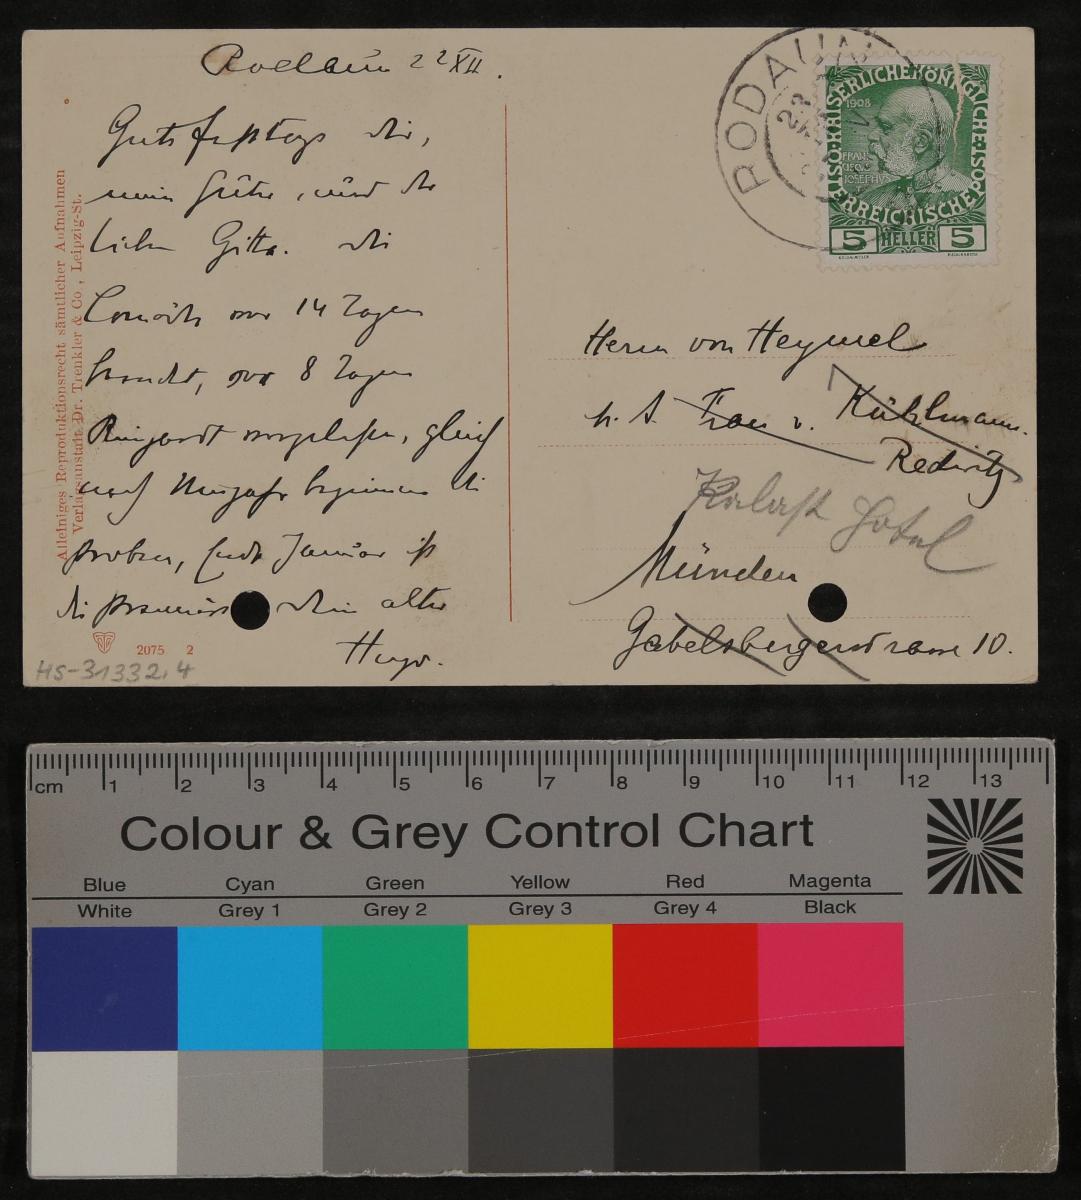 Rodaun 22 XII.
Gute Festtage dir,
mein Guter, und der
lieben Gitta. die
Comödie vor 14 Tagen
beendet, vor 8 Tagen
Reinhardt vorgelesen, gleich
nach Neujahr beginnen die
proben, Ende Januar ist
die premiere dein alter
Hugo.
Alleiniges Reproduktionsrecht sämtlicher Aufnahmen
Verlagsanstalt Dr. Trenkler & Co., Leipzig-St.
2075 2
HS-31332,4
RODAUN
KAISERLICHE KÖNIGLICHE ÖSTERREICHISCHE POST
1908
FRANC
IOSEPHVS
5 HELLER 5
Herrn von Heymel
p. A. Frau v. Kühlmann
Redwitz
Palast Hotel
München
Gabelsbergerstrasse 10.
cm 1 2 3 4 5 6 7 8 9 10 11 12 13
Colour & Grey Control Chart
Blue Cyan Green Yellow Red Magenta
White Grey 1 Grey 2 Grey 3 Grey 4 Black